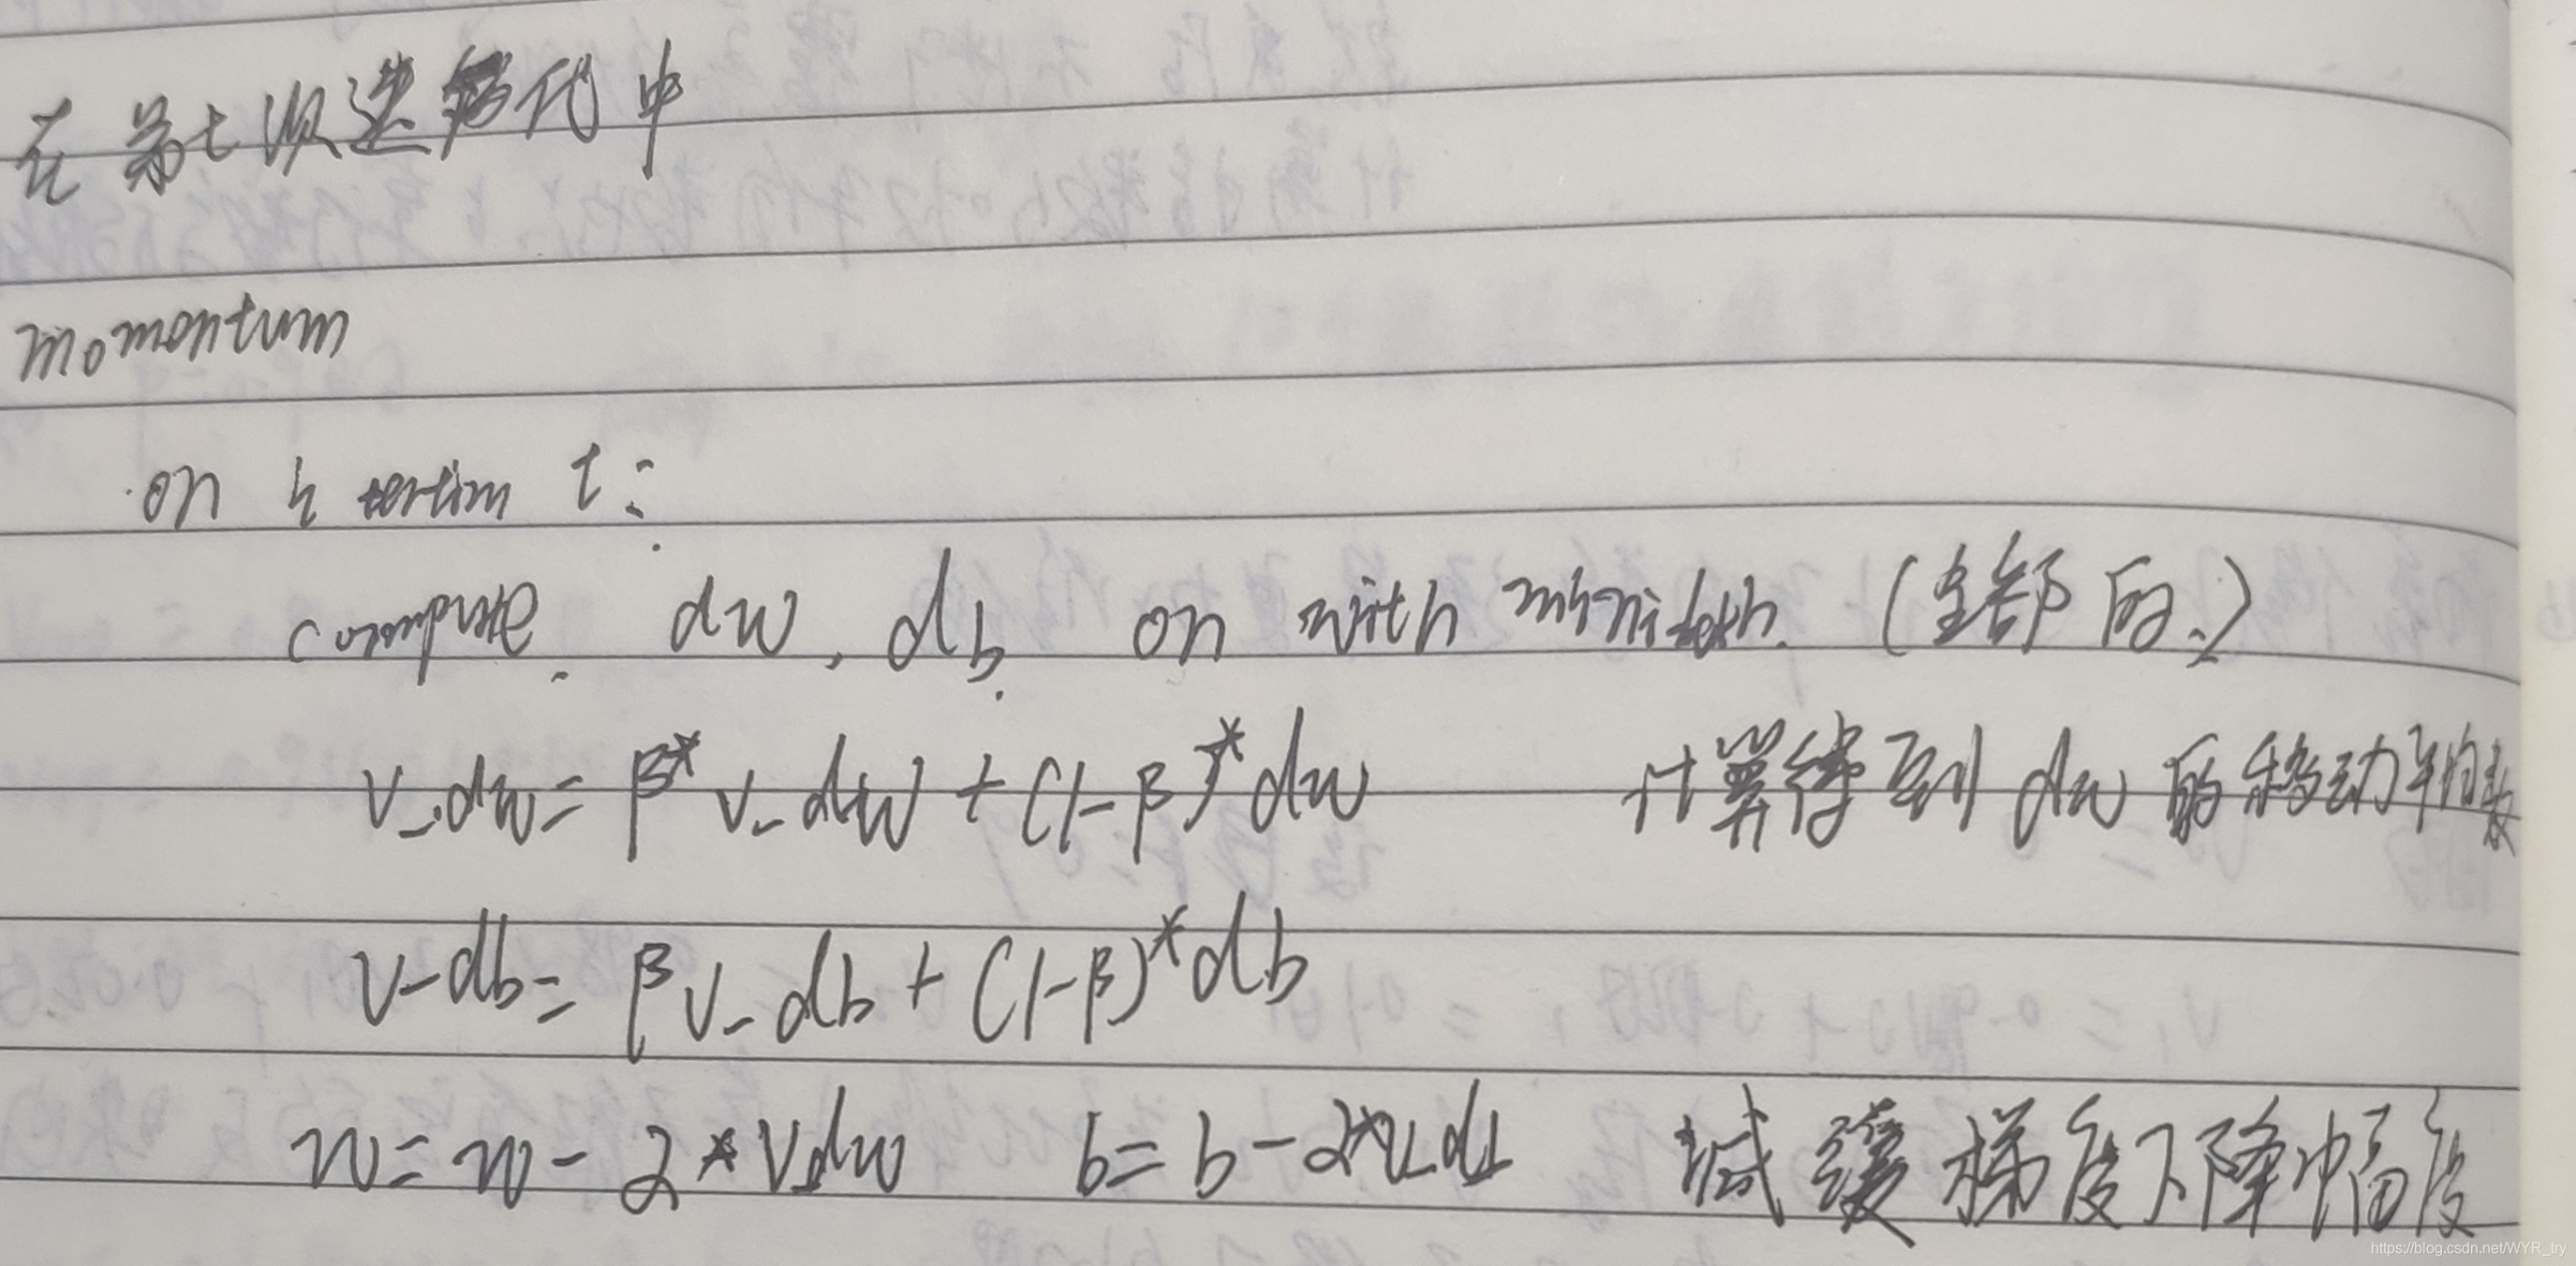 在第t次迭代中
momentum
on h tertim t:
compute dw, db on with minibatch. (全部的.)
v_dw= β* v_dw + (1-β)* dw 计算得到 dw 的移动平均数
v_db= βv_db + (1-β)* db
w = w - 2 * v_dw b = b - 2*v_db 减缓梯度下降幅度
https://blog.csdn.net/WYR_try